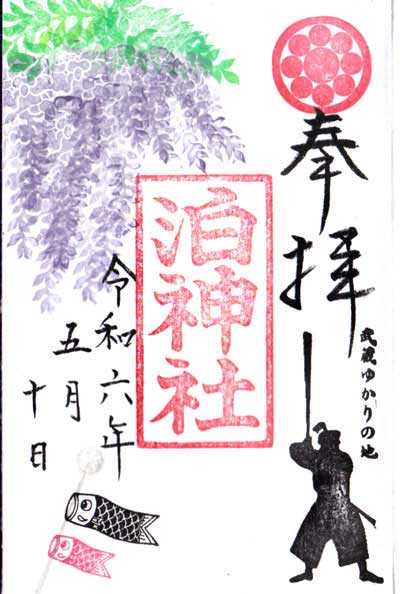 奉拝
武蔵ゆかりの地
泊神社
令和六年
五月
十日